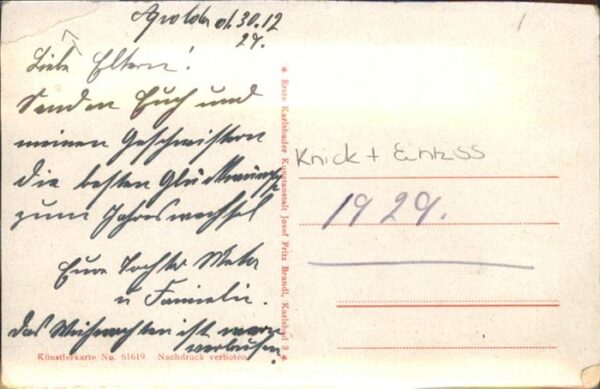 Apolda d. 30.12
29.
Liebe Eltern!
Senden Euch und
meinen Geschwistern
die besten Glückwünsche
zum Jahreswechsel
Eure Tochter Meta
u Familie.
Das Weihnachten ist
verlaufen.
Künstlerkarte No. 61619. Nachdruck verboten
* Erste Karlsbader Kunstanstalt Josef Fritz Brandl, Karlsbad 3 *
1
Knick + Einriss
1929.